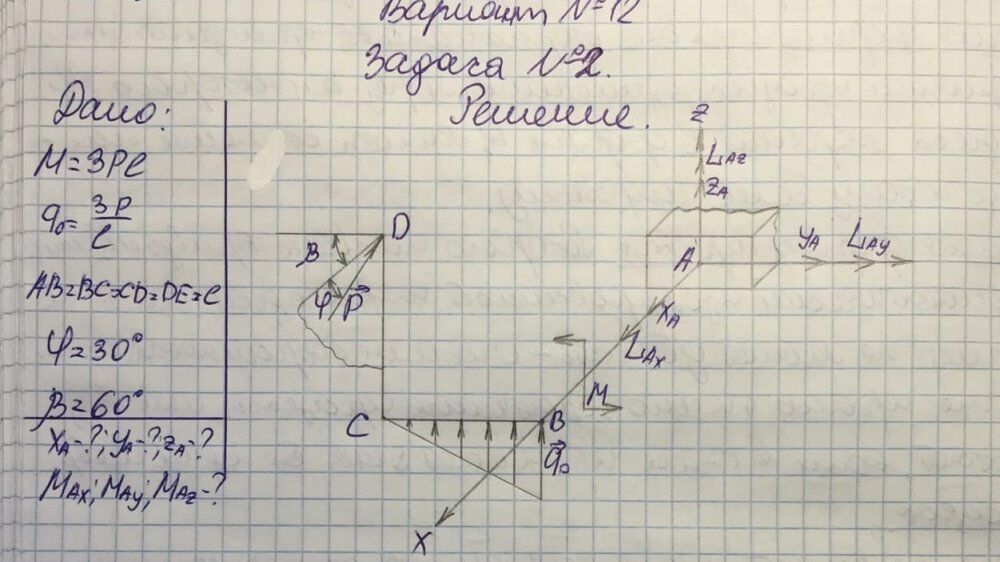 Вариант №12
Задача №2.
Дано:
Решение.
M=3Pl
q₀=3P/l
AB=BC=CD=DE=l
φ=30°
β=60°
XA-?; YA-?; ZA-?
MAx; MAy; MAz-?
Z
LAz
ZA
A
YA
LAy
XA
LAx
M
D
β
φ
P⃗
C
B
q⃗₀
X